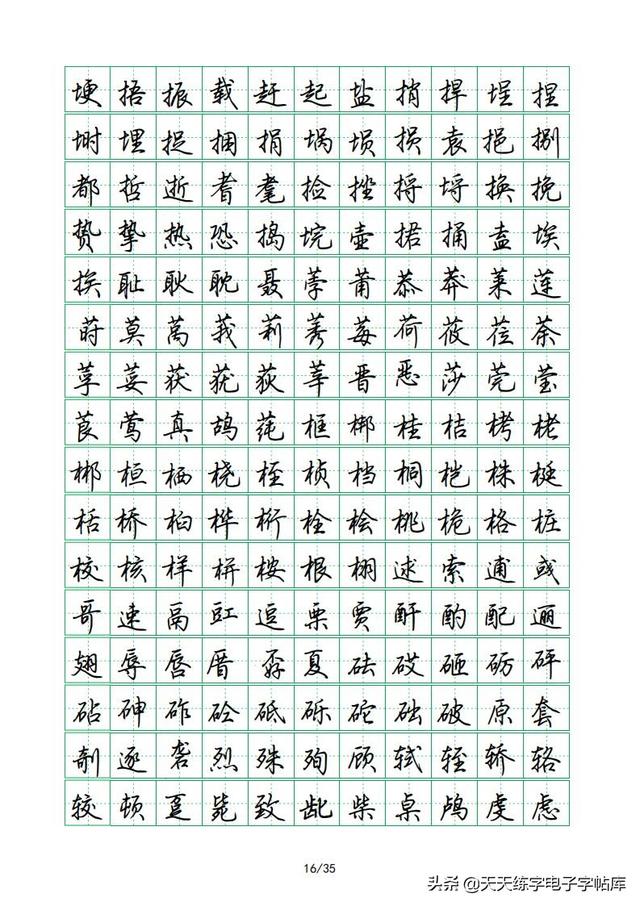 埂捂振载赶起盐捎捍埕捏
埘埋捉捆捐埚埙损袁挹捌
都哲逝耆耄捡挫捋埒换挽
贽挚热恐捣垸壶捃捅盍埃
挨耻耿耽聂莩莆恭莽莱莲
莳莫莴莪莉莠莓荷莜莅荼
莩荽获莸荻莘晋恶莎莞莹
莨莺真鸪莼框梆桂桔栲栳
郴桓栖桡桎桢档桐桤株梃
栝桥桕桦桁栓桧桃桅格桩
校核样栟桉根栩逑索逋彧
哥速鬲豇逗栗贾酐酌配逦
翅辱唇厝孬夏砝砹砸砺砰
砧砷砟砼砥砾砣础破原套
剞逐砻烈殊殉顾轼轾轿辂
较顿趸毙致龀柴桌鸬虔虑
16/35
头条 @天天练字电子字帖库